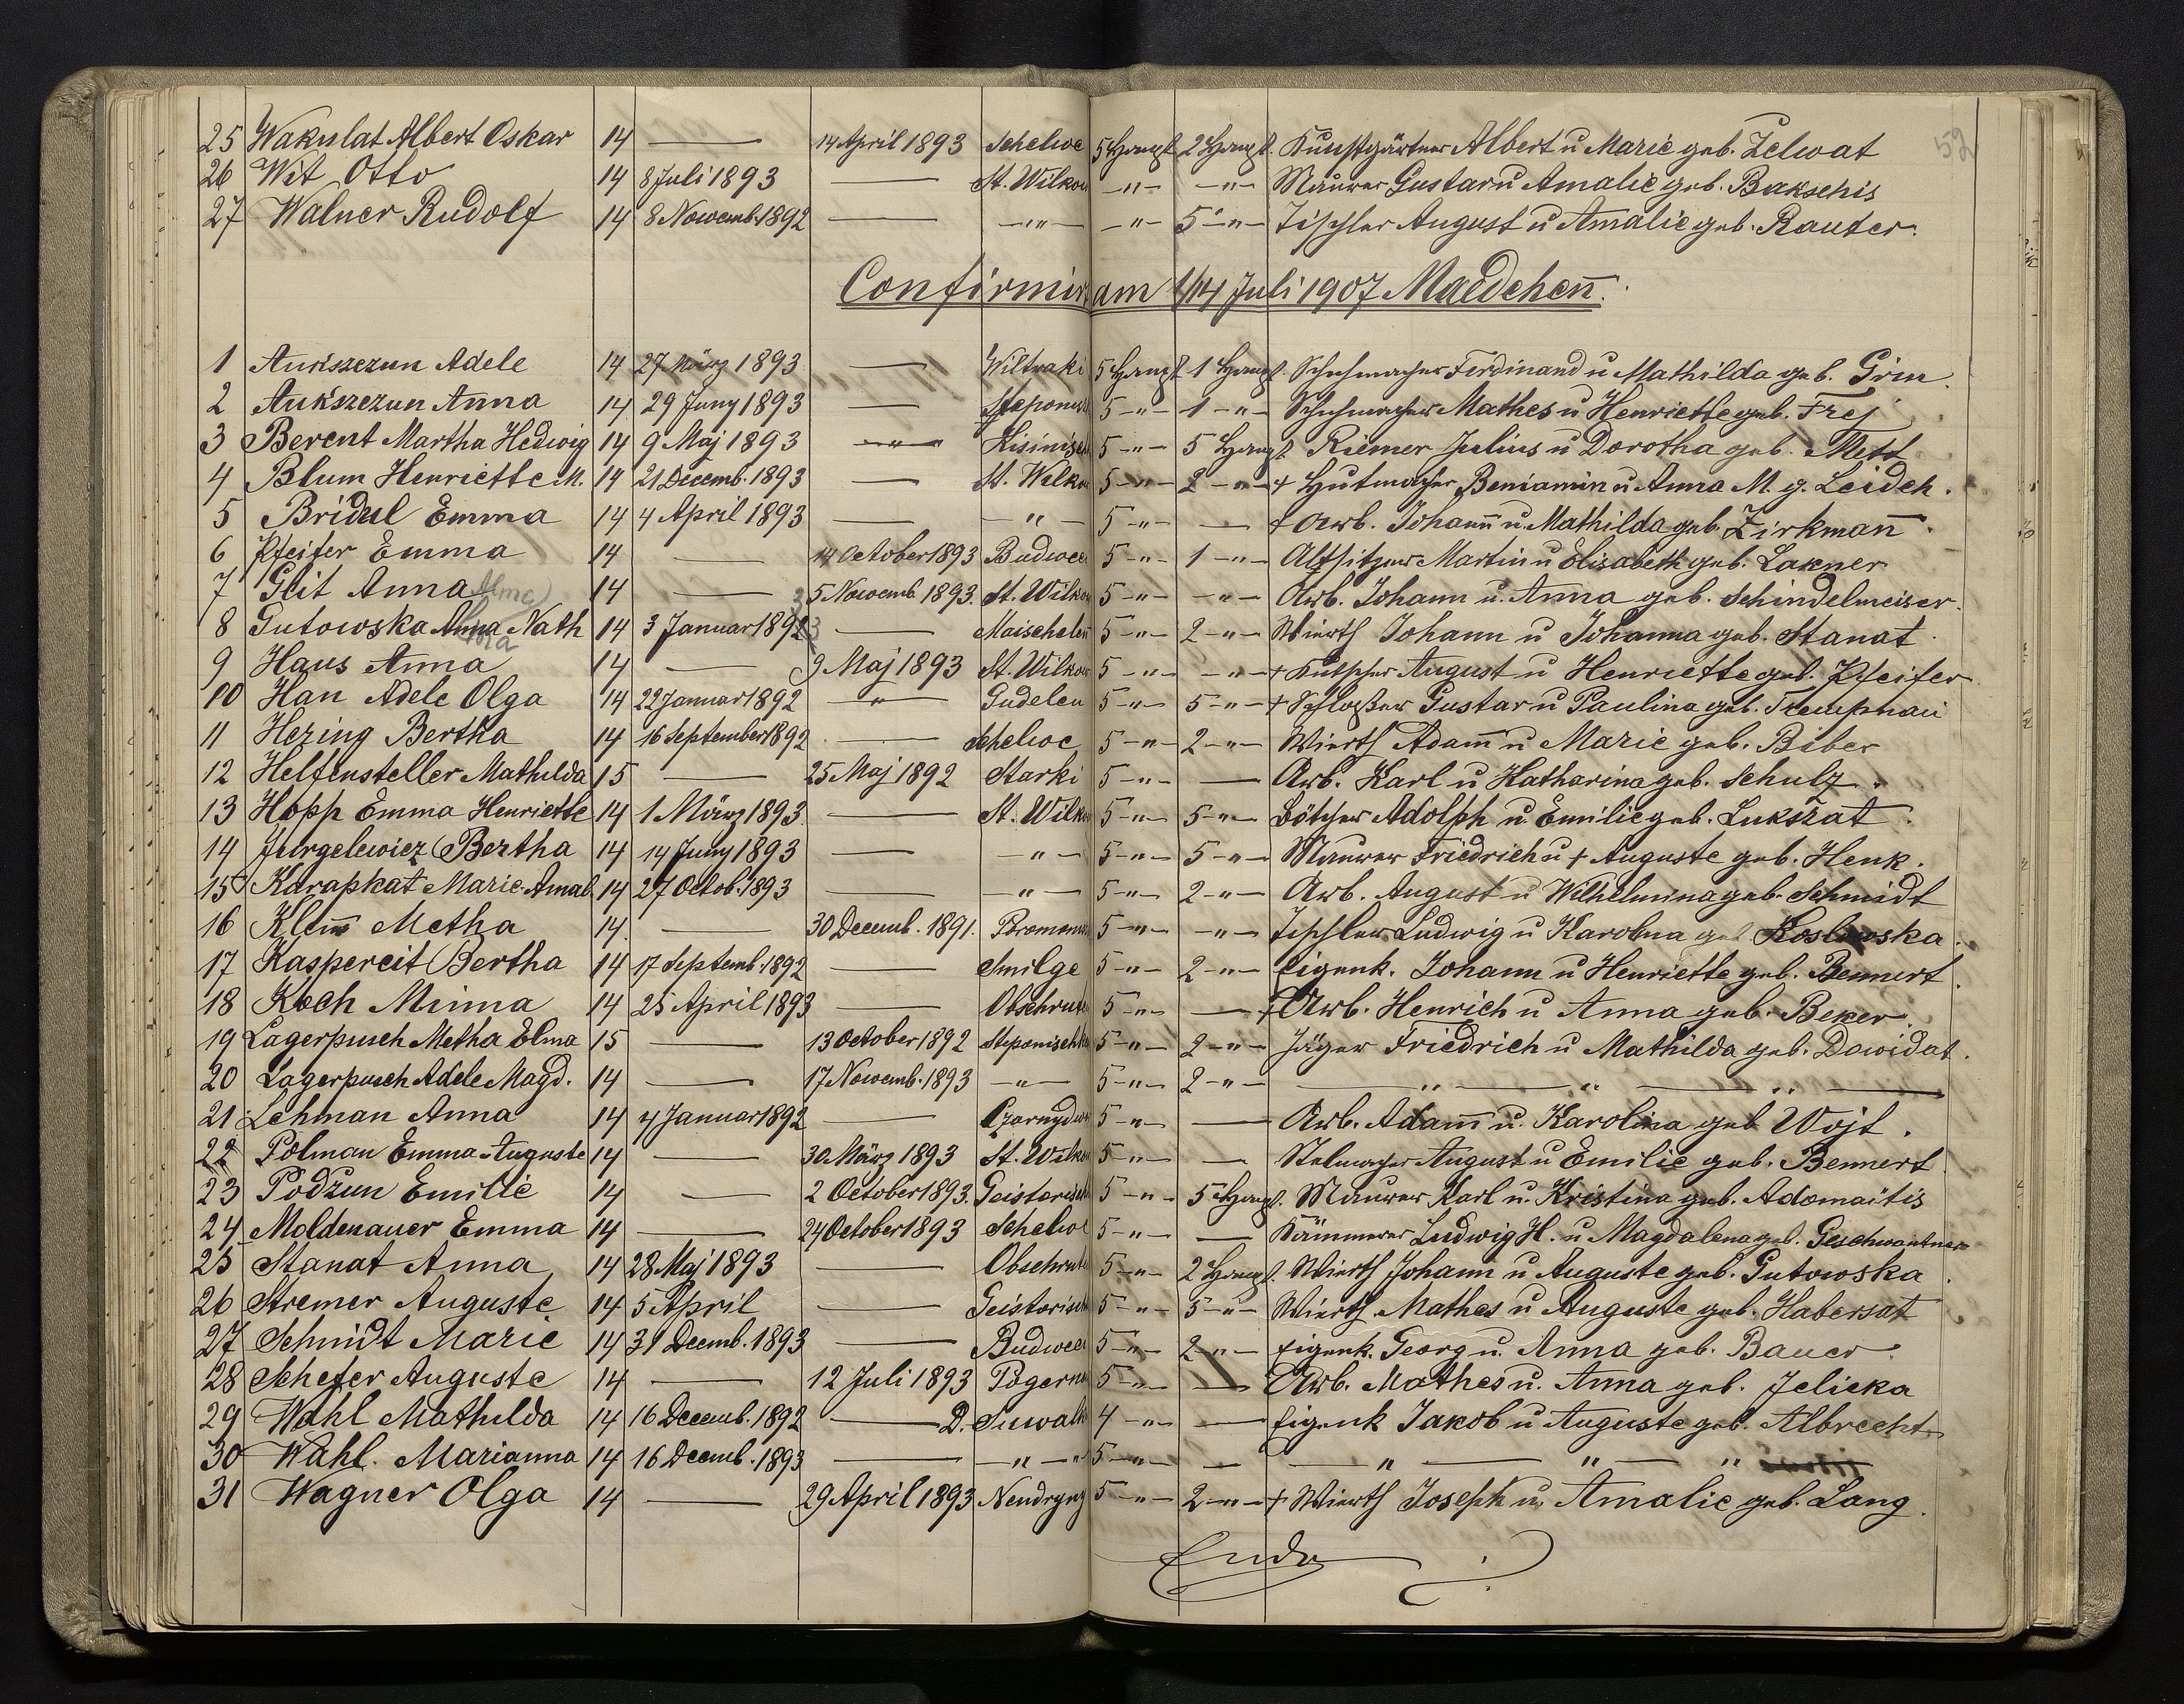 52
25 Wakulat Albert Oskar 14 — 14 April 1893 Schelwe 5 Haupt. 2 Haupt. Kunstgärtner Albert u Marie geb. Zelwat
26 Wit Otto 14 8 Juli 1893 — St. Wilkow -"- -"- Maurer Gustav u Amalie geb. Bakschis
27 Walner Rudolf 14 8 Nowemb. 1892 — -"- -"- 5 -"- Tischler August u Amalie geb. Rauter.
Confirmir am 1/14 Juli 1907 Maedchen̄.
1 Aukszezun Adele 14 27 März 1893 — Wiltraki 5 Haupt. 1 Haupt. Schuhmacher Ferdinand u Mathilda geb. Grin.
2 Aukszezun An̄a 14 29 Juny 1893 — Steponisch 5 -"- 1 -"- Schuhmacher Mathes u Henriette geb. Frej
3 Berent Martha Hedwig 14 9 Maj 1893 -"- 5 -"- 5 Haupt. Riemer Julius u Dorotha geb. Mett
4 Blum Henriette M. 14 21 Decemb. 1893 — St. Wilkow 5 -"- 2 -"- + Hutmacher Beniamin u. Anna M. g. Leideh.
5 Bridul Emma 14 4 April 1893 — -"- 5 -"- — + Arb. Johan̄ u. Mathilda geb. Zirkman̄.
6 Pfeifer Emma 14 — 14 October 1893 Budwee 5 -"- 1 -"- Altsitzer Martin u Elisabeth geb. Lakner
7 Geit Anna 14 — 5 Nowemb. 1893. St. Wilkow 5 -"- -"- Arb. Johann u. Anna geb. Schindelmeiser.
8 Gutowska Anna Nath 14 3 Januar 1893 — Maischelen 5 -"- 2 -"- Wierth Johann u Johanna geb. Stanat.
9 Haus Anna 14 — 9 Maj 1893 St. Wilkow 5 -"- -"- + Kutscher August u Henriette geb. Pfeifer
10 Han Adele Olga 14 22 Januar 1892 -"- Gudelen 5 -"- 5 -"- + Schloßer Gustav u Paulina geb. Trempnau
11 Hezing Bertha 14 16 September 1892 — Schelwe 5 -"- 2 -"- Wierth Adam̄ u Marie geb. Biber
12 Helfensteller Mathilda 15 — 25 Maj 1892 Starki 5 -"- — Arb. Karl u Katharina geb. Schulz.
13 Hopp Emma Henriette 14 1 März 1893. — St. Wilkow 5 -"- 5 -"- Bötcher Adolph u. Emilie geb. Lukszat.
14 Jurgelewicz Bertha 14 14 Juny 1893 — -"- 5 -"- 5 -"- Maurer Friedrich u + Auguste geb. Henk.
15 Karapkat Marie Amal. 14 27 Octob. 1893 — -"- 5 -"- 2 -"- Arb. August u Wilhelmina geb. Schmidt
16 Klem̄ Metha 14. — 30 Decemb. 1891. 5 -"- -"- Tischler Ludwig u Karolina geb Koslowska.
17 Kaspereit Bertha 14 17 Septemb. 1892 — Smilge 5 -"- 2 -"- Eigenk. Johann u Henriette geb. Bennert.
18 Koch Minna 14 25 April 1893 — Obschrut 5 -"- — + Arb. Henrich u Anna geb. Beker.
19 Lagerpusch Metha Elma 15 — 13 October 1892 Steponischk 5 -"- 2 -"- Jäger Friedrich u Mathilda geb. Dawidat.
20 Lagerpusch Adele Magd. 14 — 17 Nowemb. 1893 -"- 5 -"- 2 -"- — " — " — " —
21 Lehman Anna 14 4 Januar 1892 — Czarnydwor 5 -"- — Arb. Adam̄ u. Karolina geb Wojt.
22 Polman Emma Auguste 14 — 30 März 1893 St. Wilkow 5 -"- — Stelmacher August u Emilie geb. Bennert
23 Podzun Emilie 14 — 2 October 1893. Geistarisch 5 -"- 5 Haupt. Maurer Karl u. Kristina geb. Adomaitis
24 Moldenauer Emma 14 — 24 October 1893 Schelwe 5 -"- — Kämmerer Ludwig H. u Magdalena geb. Geschwantner
25 Stanat Anna 14 28 Maj 1893 — Obschrut 5 -"- 2 Haupt. Wierth Johann u Auguste geb. Gutowska.
26 Stremer Auguste 14 5 April — Geistarisch 5 -"- 5 -"- Wierth Mathes u Auguste geb. Habersat
27 Schmidt Marie 14 31 Decemb. 1893 — Budwee 5 -"- 2 -"- Eigenk. Georg u. Anna geb. Bauer.
28 Schefer Auguste 14 — 12 Juli 1893 Pogerne 5 -"- — Arb. Mathes u. Anna geb. Jelicka
29 Wahl Mathilda 14 16 Decemb. 1892 — D. Suwalk 4 -"- — Eigenk Jakob u Auguste geb. Albrecht
30 Wahl. Marianna 14 16 Decemb. 1893 — -"- 5 -"- — — " — " — " —
31 Wagner Olga 14 — 29 April 1893 Nendryny 5 -"- 2 -"- + Wierth Joseph u. Amalie geb. Lang.
Ende